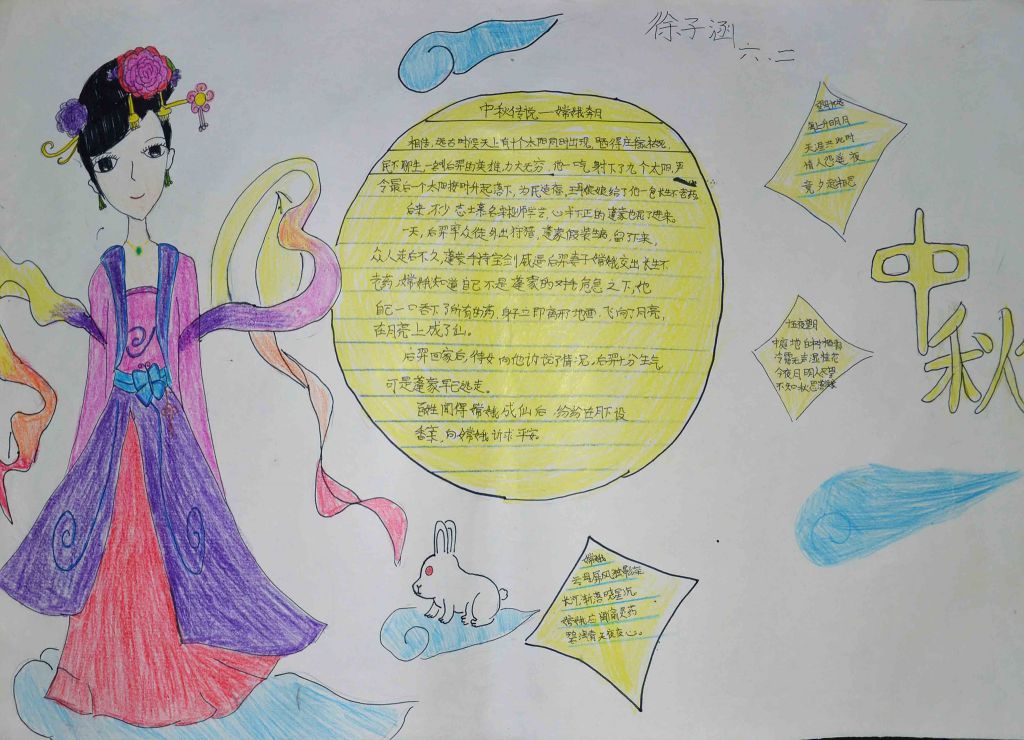 徐子涵
六、二
中秋传说—嫦娥奔月
相传,远古时候天上有十个太阳同时出现,晒得庄稼枯死,
民不聊生,一名叫后羿的英雄力大无穷,他一气射下了九个太阳,
令最后一个太阳按时升起落下,为民造福,王母娘娘给了他一包长生不老药
后来,不少志士慕名来投师学艺,心术不正的蓬蒙也混了进来。
一天,后羿率众徒外出狩猎,蓬蒙假装生病,留了下来,
众人走后不久,蓬蒙手持宝剑威逼后羿妻子嫦娥交出长生不
老药,嫦娥知道自己不是蓬蒙的对手危急之下,她
自己一口吞下了所有的药,身子立即离开地面,飞向了月亮,
在月亮上成了仙。
后羿回家后,侍女向他诉说了情况,后羿十分生气
可是蓬蒙早已逃走。
百姓闻得嫦娥成仙后,纷纷在月下设
香案,向嫦娥祈求平安。
海上升明月
天涯共此时
情人怨遥夜
竟夕起相思
十五夜望月
中庭地白树栖鸦
冷露无声湿桂花
今夜月明人尽望
不知秋思落谁家
中秋
嫦娥
云母屏风烛影深
长河渐落晓星沉
嫦娥应悔偷灵药
碧海青天夜夜心。